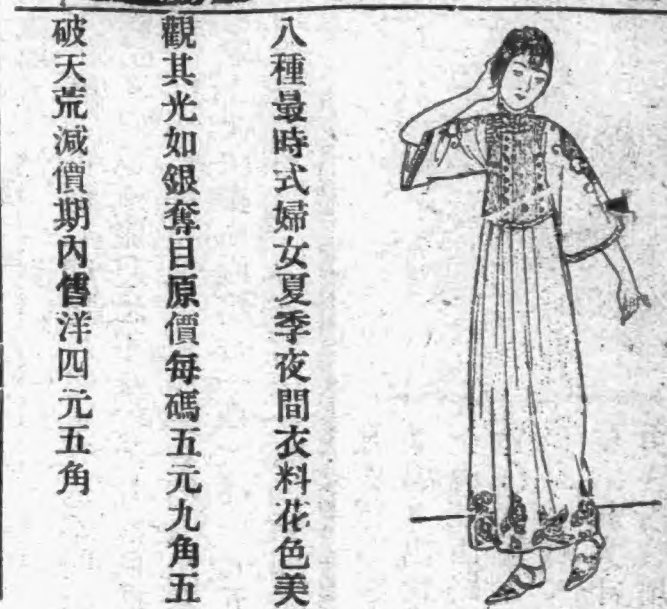 八種最時式婦女夏季夜間衣料花色美
觀其光如銀奪目原價每碼五元九角五
破天荒減價期內售洋四元五角